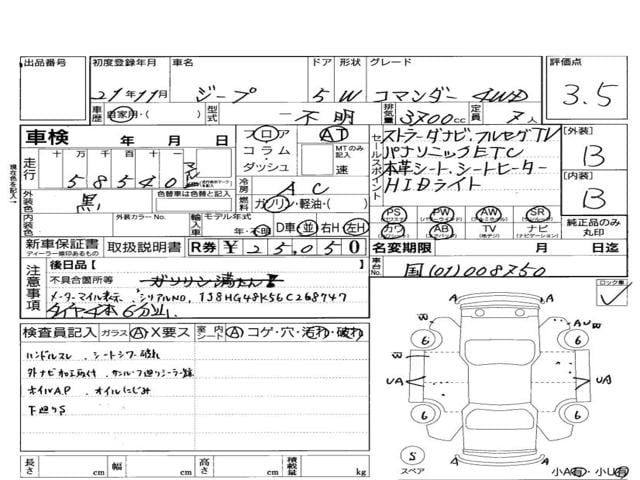 出品番号 初度登録年月 車名 ドア 形状 グレード 評価点
21年11月 ジープ 5 W コマンダー 4WD 3.5
車歴 自家用・( ) 型式 不明 排気量 3700cc 定員 7人
車検 年 月 日 フロア AT セールスポイント ストラーダナビ、フルセグTV 【外装】
走行 十万 万 千 百 十 一 コラム MTのみ記入 パナソニックETC B
58540 マイル ダッシュ 速 本革シート、シートヒーター 【内装】
外装色 黒 色替車は色替と記入 冷房 AC HIDライト B
燃料 ガソリン・軽油・( )
内装色 外装カラーNo. 輸入車 モデル年式 年・不明 D車・並 右H・左H
PS PW AW SR
カワ AB TV ナビ 純正品のみ丸印
新車保証書 取扱説明書 R券 ¥25,050 名変期限 月 日迄
ディーラー様印あるもの
車台No. 国(01)008750
注意事項 後日品【 】
不具合箇所等 ガソリン満たん
メーターマイル表示、シリアルNO. 1J8HG48K56C268747
タイヤ4本6分山
ロック車
検査員記入 ガラス A・X要ス 室内シート A コゲ・穴・汚れ・破れ
ハンドルスレ、シートシワ・破れ
外ナビ加工取付、サンルーフ廻りシーラー跡
ホイルAP、オイルにじみ
下廻りS
A A
W AUW
6 6
W
UA UA
6 6
S A A
スペア 小A有・小U有
長さ cm 幅 cm 高さ cm 積載量 kg